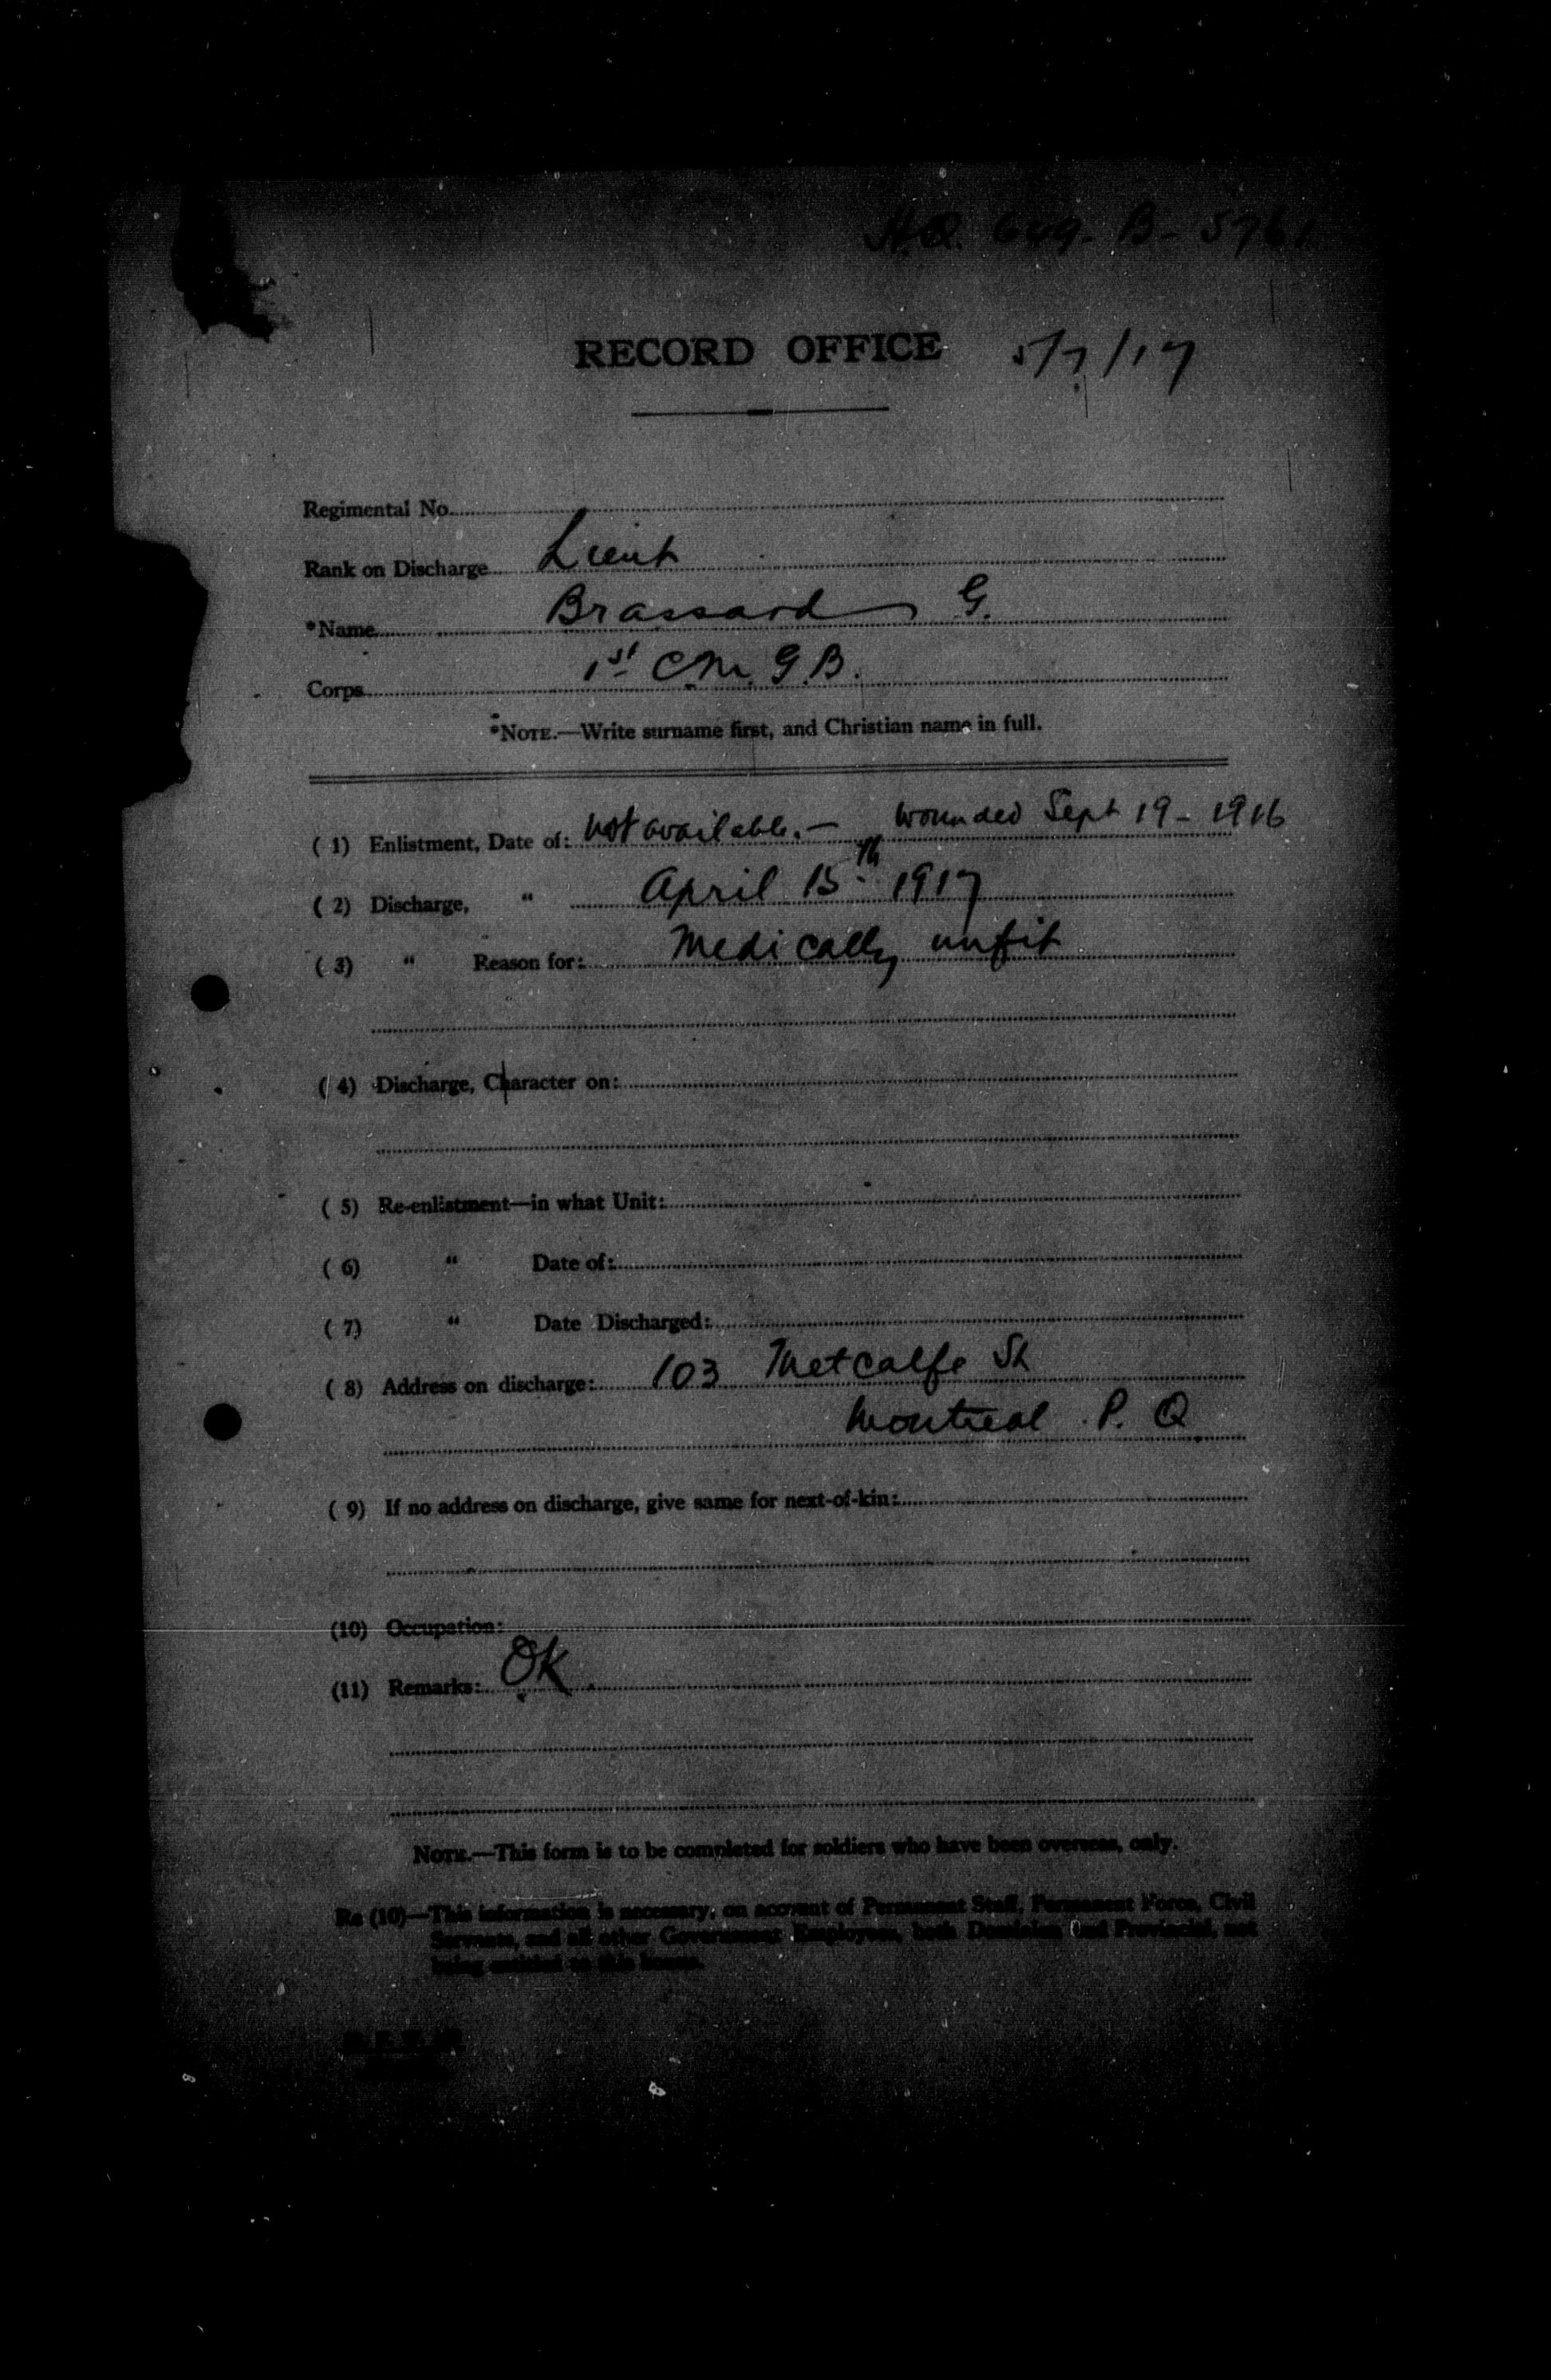 H.Q. 649-B-5761
RECORD OFFICE 5/7/17
Regimental No.
Rank on Discharge Lieut
*Name Brassard G.
Corps 1st C.M.G.B.
*NOTE.—Write surname first, and Christian name in full.
( 1) Enlistment, Date of: not available.— wounded Sept 19-1916
( 2) Discharge, " April 15th 1917
( 3) " Reason for: Medically unfit
( 4) Discharge, Character on:
( 5) Re-enlistment—in what Unit:
( 6) " Date of:
( 7) " Date Discharged:
( 8) Address on discharge: 103 Metcalfe St
Montreal P.Q.
( 9) If no address on discharge, give same for next-of-kin:
(10) Occupation:
(11) Remarks: OK
NOTE.—This form is to be completed for soldiers who have been overseas, only.
Re (10)—This information is necessary, on account of Permanent Staff, Permanent Force, Civil
Servants, and all other Government Employees, both Dominion and Provincial, not
being entitled to this